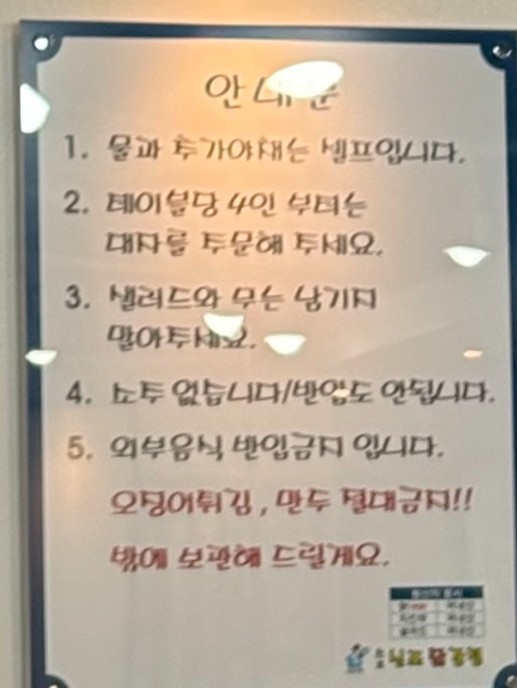 안내문
1. 물과 추가야채는 셀프입니다.
2. 테이블당 4인 부터는
대자를 주문해 주세요.
3. 샐러드와 무는 남기지
말아주세요.
4. 소주 없습니다/반입도 안됩니다.
5. 외부음식 반입금지 입니다.
오징어튀김, 만두 절대금지!!
밖에 보관해 드릴게요.